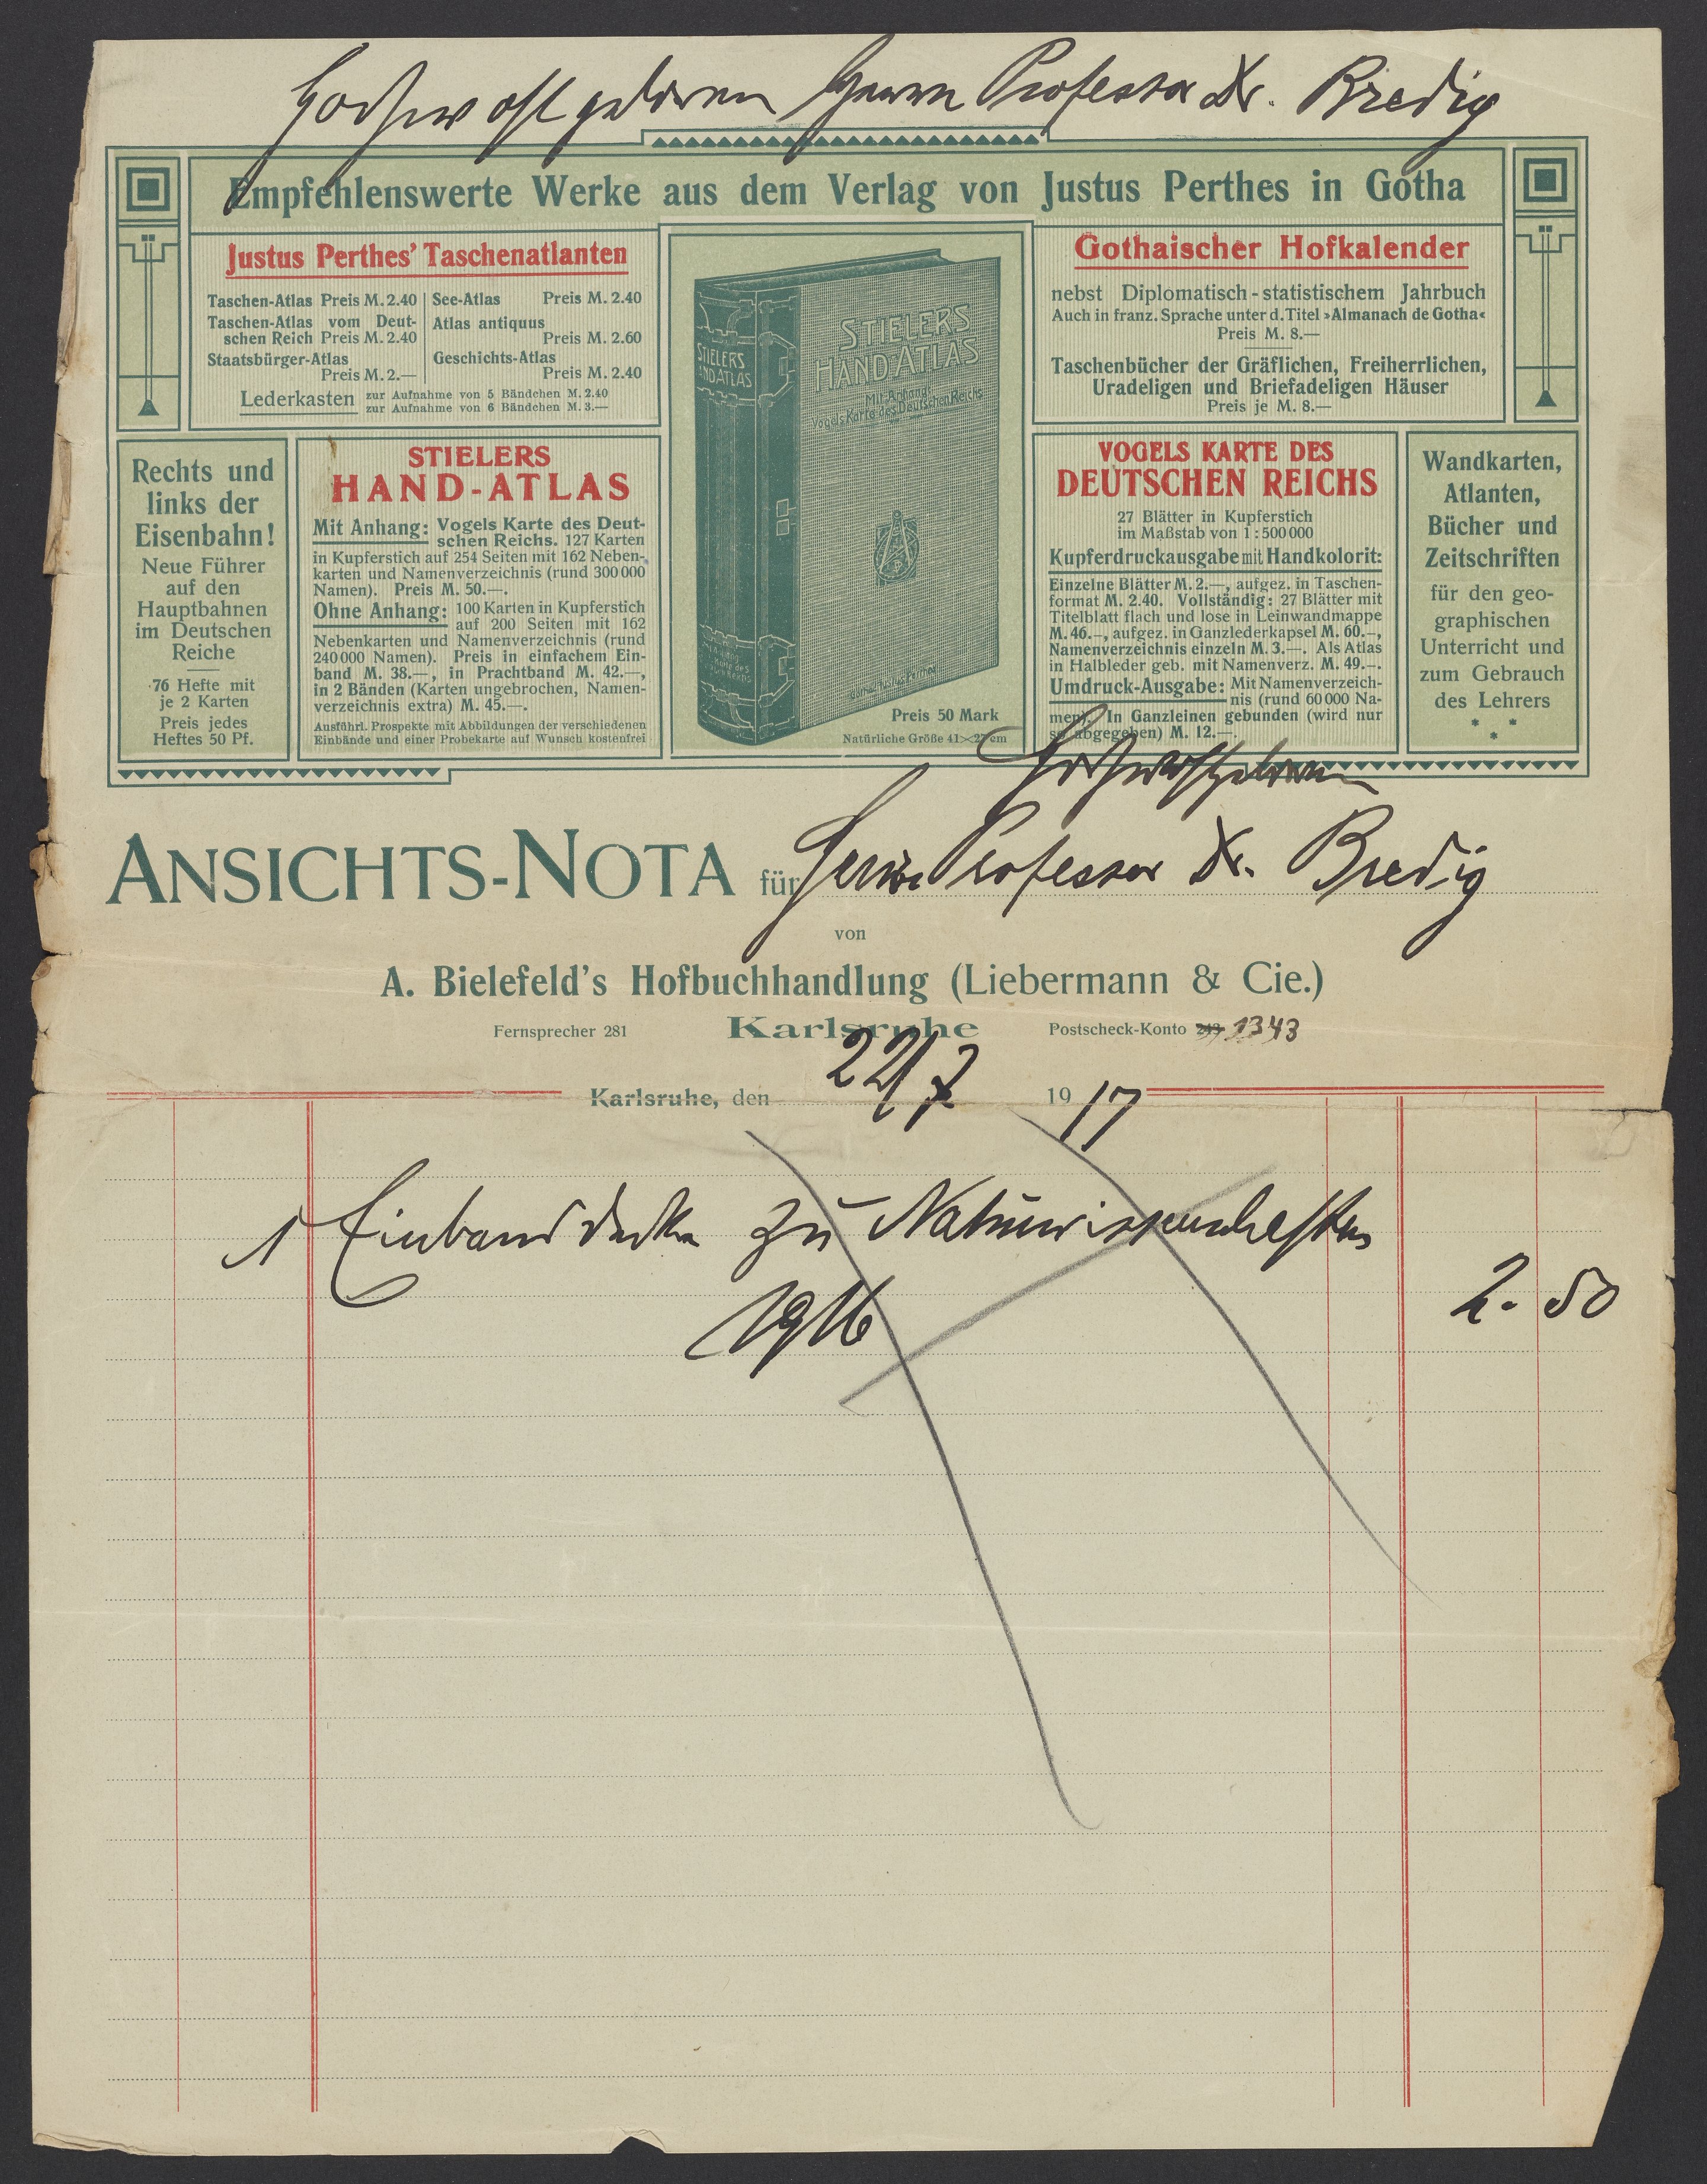 Hochwohlgeboren Herrn Professor Dr. Bredig
Empfehlenswerte Werke aus dem Verlag von Justus Perthes in Gotha
Justus Perthes' Taschenatlanten
Taschen-Atlas Preis M. 2.40
Taschen-Atlas vom Deut-
schen Reich Preis M. 2.40
Staatsbürger-Atlas
Preis M. 2.—
See-Atlas Preis M. 2.40
Atlas antiquus
Preis M. 2.60
Geschichts-Atlas
Preis M. 2.40
Lederkasten zur Aufnahme von 5 Bändchen M. 2.40
zur Aufnahme von 6 Bändchen M. 3.—
STIELERS
HAND-ATLAS
STIELERS
HAND-ATLAS
Mit Anhang:
Vogels Karte des Deutschen Reichs
Gotha: Justus Perthes
Preis 50 Mark
Natürliche Größe 41×27 cm
Gothaischer Hofkalender
nebst Diplomatisch-statistischem Jahrbuch
Auch in franz. Sprache unter d. Titel »Almanach de Gotha«
Preis M. 8.—
Taschenbücher der Gräflichen, Freiherrlichen,
Uradeligen und Briefadeligen Häuser
Preis je M. 8.—
Rechts und
links der
Eisenbahn!
Neue Führer
auf den
Hauptbahnen
im Deutschen
Reiche
76 Hefte mit
je 2 Karten
Preis jedes
Heftes 50 Pf.
STIELERS
HAND-ATLAS
Mit Anhang: Vogels Karte des Deut-
schen Reichs. 127 Karten
in Kupferstich auf 254 Seiten mit 162 Neben-
karten und Namenverzeichnis (rund 300 000
Namen). Preis M. 50.—.
Ohne Anhang: 100 Karten in Kupferstich
auf 200 Seiten mit 162
Nebenkarten und Namenverzeichnis (rund
240 000 Namen). Preis in einfachem Ein-
band M. 38.—, in Prachtband M. 42.—,
in 2 Bänden (Karten ungebrochen, Namen-
verzeichnis extra) M. 45.—.
Ausführl. Prospekte mit Abbildungen der verschiedenen
Einbände und einer Probekarte auf Wunsch kostenfrei
VOGELS KARTE DES
DEUTSCHEN REICHS
27 Blätter in Kupferstich
im Maßstab von 1:500 000
Kupferdruckausgabe mit Handkolorit:
Einzelne Blätter M. 2.—, aufgez. in Taschen-
format M. 2.40. Vollständig: 27 Blätter mit
Titelblatt flach und lose in Leinwandmappe
M. 46.—, aufgez. in Ganzlederkapsel M. 60.—,
Namenverzeichnis einzeln M. 3.—. Als Atlas
in Halbleder geb. mit Namenverz. M. 49.—.
Umdruck-Ausgabe: Mit Namenverzeich-
nis (rund 60 000 Na-
men). In Ganzleinen gebunden (wird nur
so abgegeben) M. 12.—.
Wandkarten,
Atlanten,
Bücher und
Zeitschriften
für den geo-
graphischen
Unterricht und
zum Gebrauch
des Lehrers
* * *
Hochwohlgeboren
ANSICHTS-NOTA für Herrn Professor Dr. Bredig
von
A. Bielefeld's Hofbuchhandlung (Liebermann & Cie.)
Fernsprecher 281 Karlsruhe Postscheck-Konto 243 1343
Karlsruhe, den 22/7 1917
1 Einbanddecke zu Naturwissenschaften
1916
2. 50